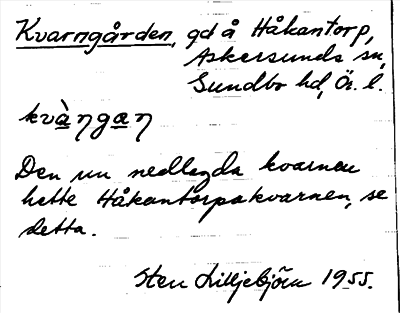 Kvarngården, gd å Håkantorp,
Askersunds sn,
Sundbo hd, Ör. l.
kvàŋgæŋ
Den nu nedlagda kvarnen
hette Håkantorpakvarnen, se
detta.
Sten Lilljebjörn 1955.